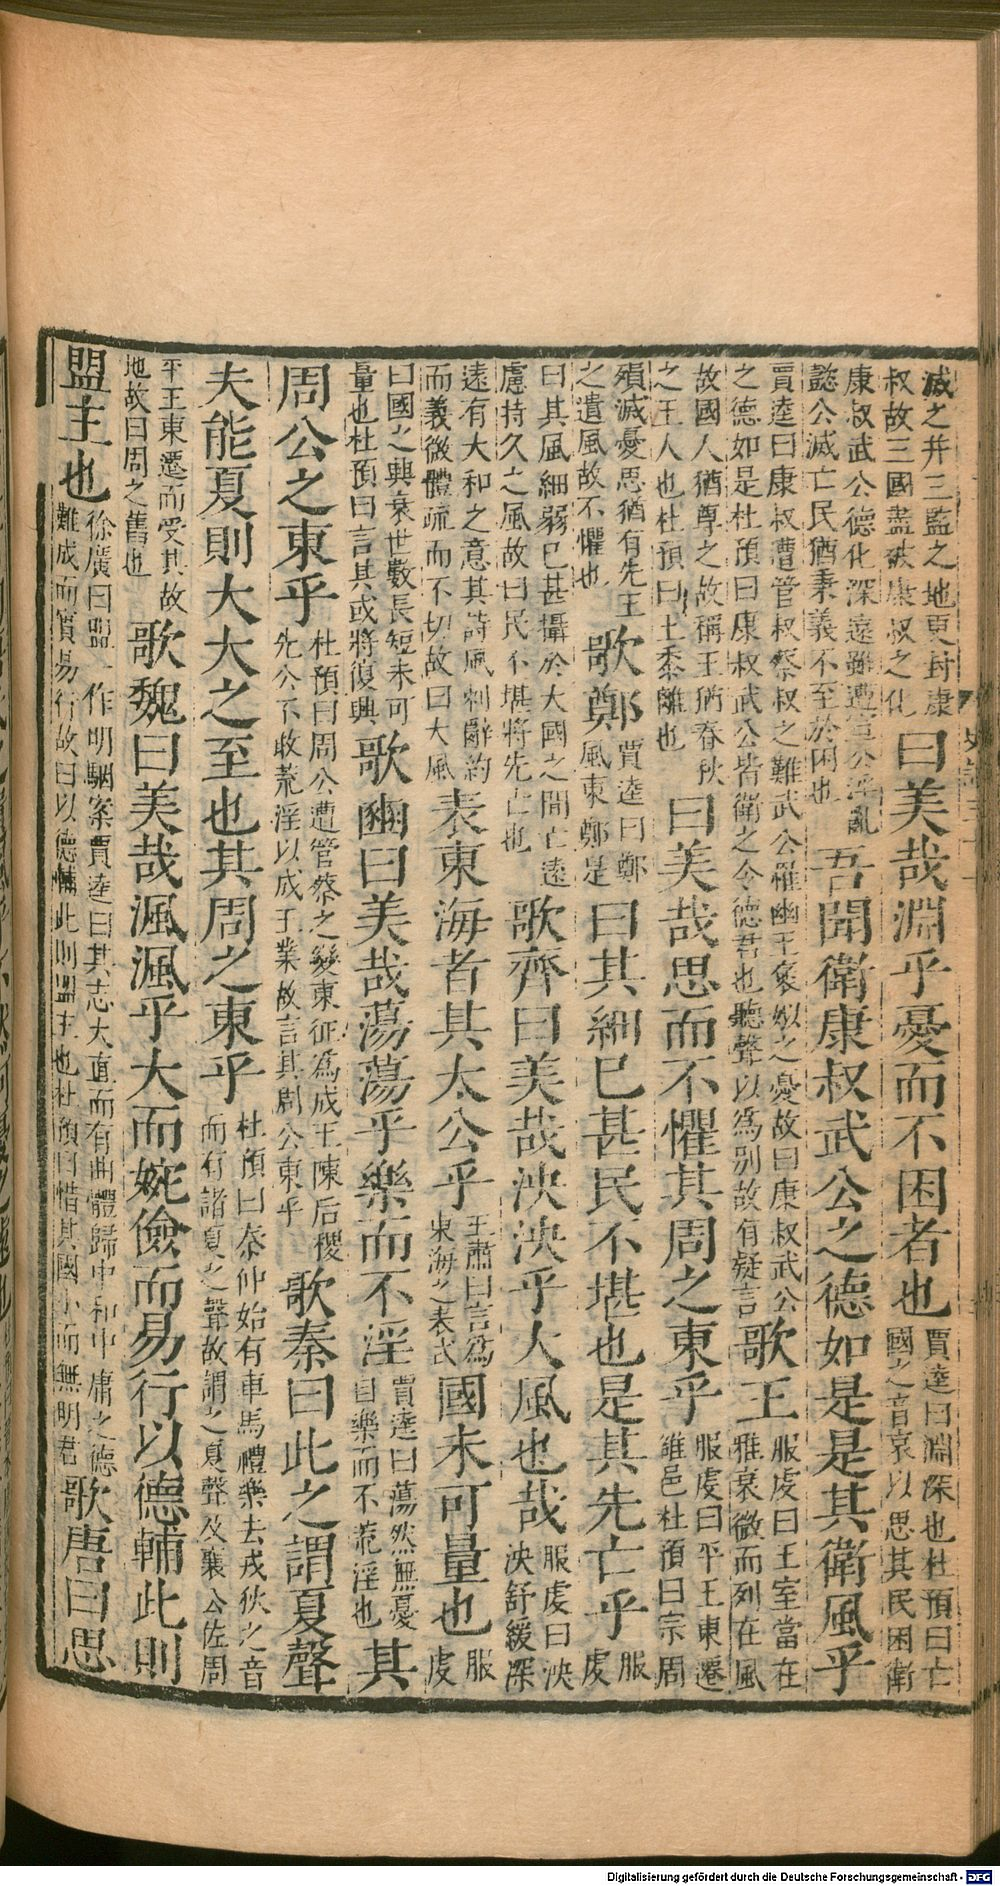 滅之并三監之地更封康叔故三國盡被康叔之化曰美哉淵乎憂而不困者也賈逵曰淵深也杜預曰亡國之音哀以思其民困衛
康叔武公德化深遠雖遭宣公淫亂懿公滅亡民猶秉義不至於困也吾聞衛康叔武公之德如是是其衛風乎
賈逵曰康叔遭管叔蔡叔之難武公罹幽王褒姒之憂故曰康叔武公之德如是杜預曰康叔武公皆衛之令德君也聽聲以為別故有疑言歌王服虔曰王室當在雅衰微而列在風
故國人猶尊之故稱王猶春秋之王人也杜預曰王黍離也曰美哉思而不懼其周之東乎服虔曰平王東遷雒邑杜預曰宗周
殞滅憂思猶有先王之遺風故不懼也歌鄭賈逵曰鄭風東鄭是曰其細已甚民不堪也是其先亡乎服虔
曰其風細弱已甚攝於大國之間亡遠慮持久之風故曰民不堪將先亡也歌齊曰美哉泱泱乎大風也哉服虔曰泱泱舒緩深
遠有大和之意其詩風刺辭約而義微體疏而不切故曰大風表東海者其太公乎王肅曰言為東海之表式國未可量也服虔
曰國之興衰世數長短未可量也杜預曰言其或將復興歌豳曰美哉蕩蕩乎樂而不淫賈逵曰蕩然無憂自樂而不荒淫也其
周公之東乎杜預曰周公遭管蔡之變東征為成王陳后稷先公不敢荒淫以成王業故言其周公東乎歌秦曰此之謂夏聲
夫能夏則大大之至也其周之東乎杜預曰秦仲始有車馬禮樂去戎狄之音而有諸夏之聲故謂之夏聲及襄公佐周
平王東遷而受其故地故曰周之舊也歌魏曰美哉渢渢乎大而婉儉而易行以德輔此則
盟主也徐廣曰盟一作明駰案賈逵曰其志大直而有曲體歸中和中庸之德難成而實易行故曰以德輔此則盟主也杜預曰惜其國小而無明君歌唐曰思
Digitalisierung gefördert durch die Deutsche Forschungsgemeinschaft - DFG